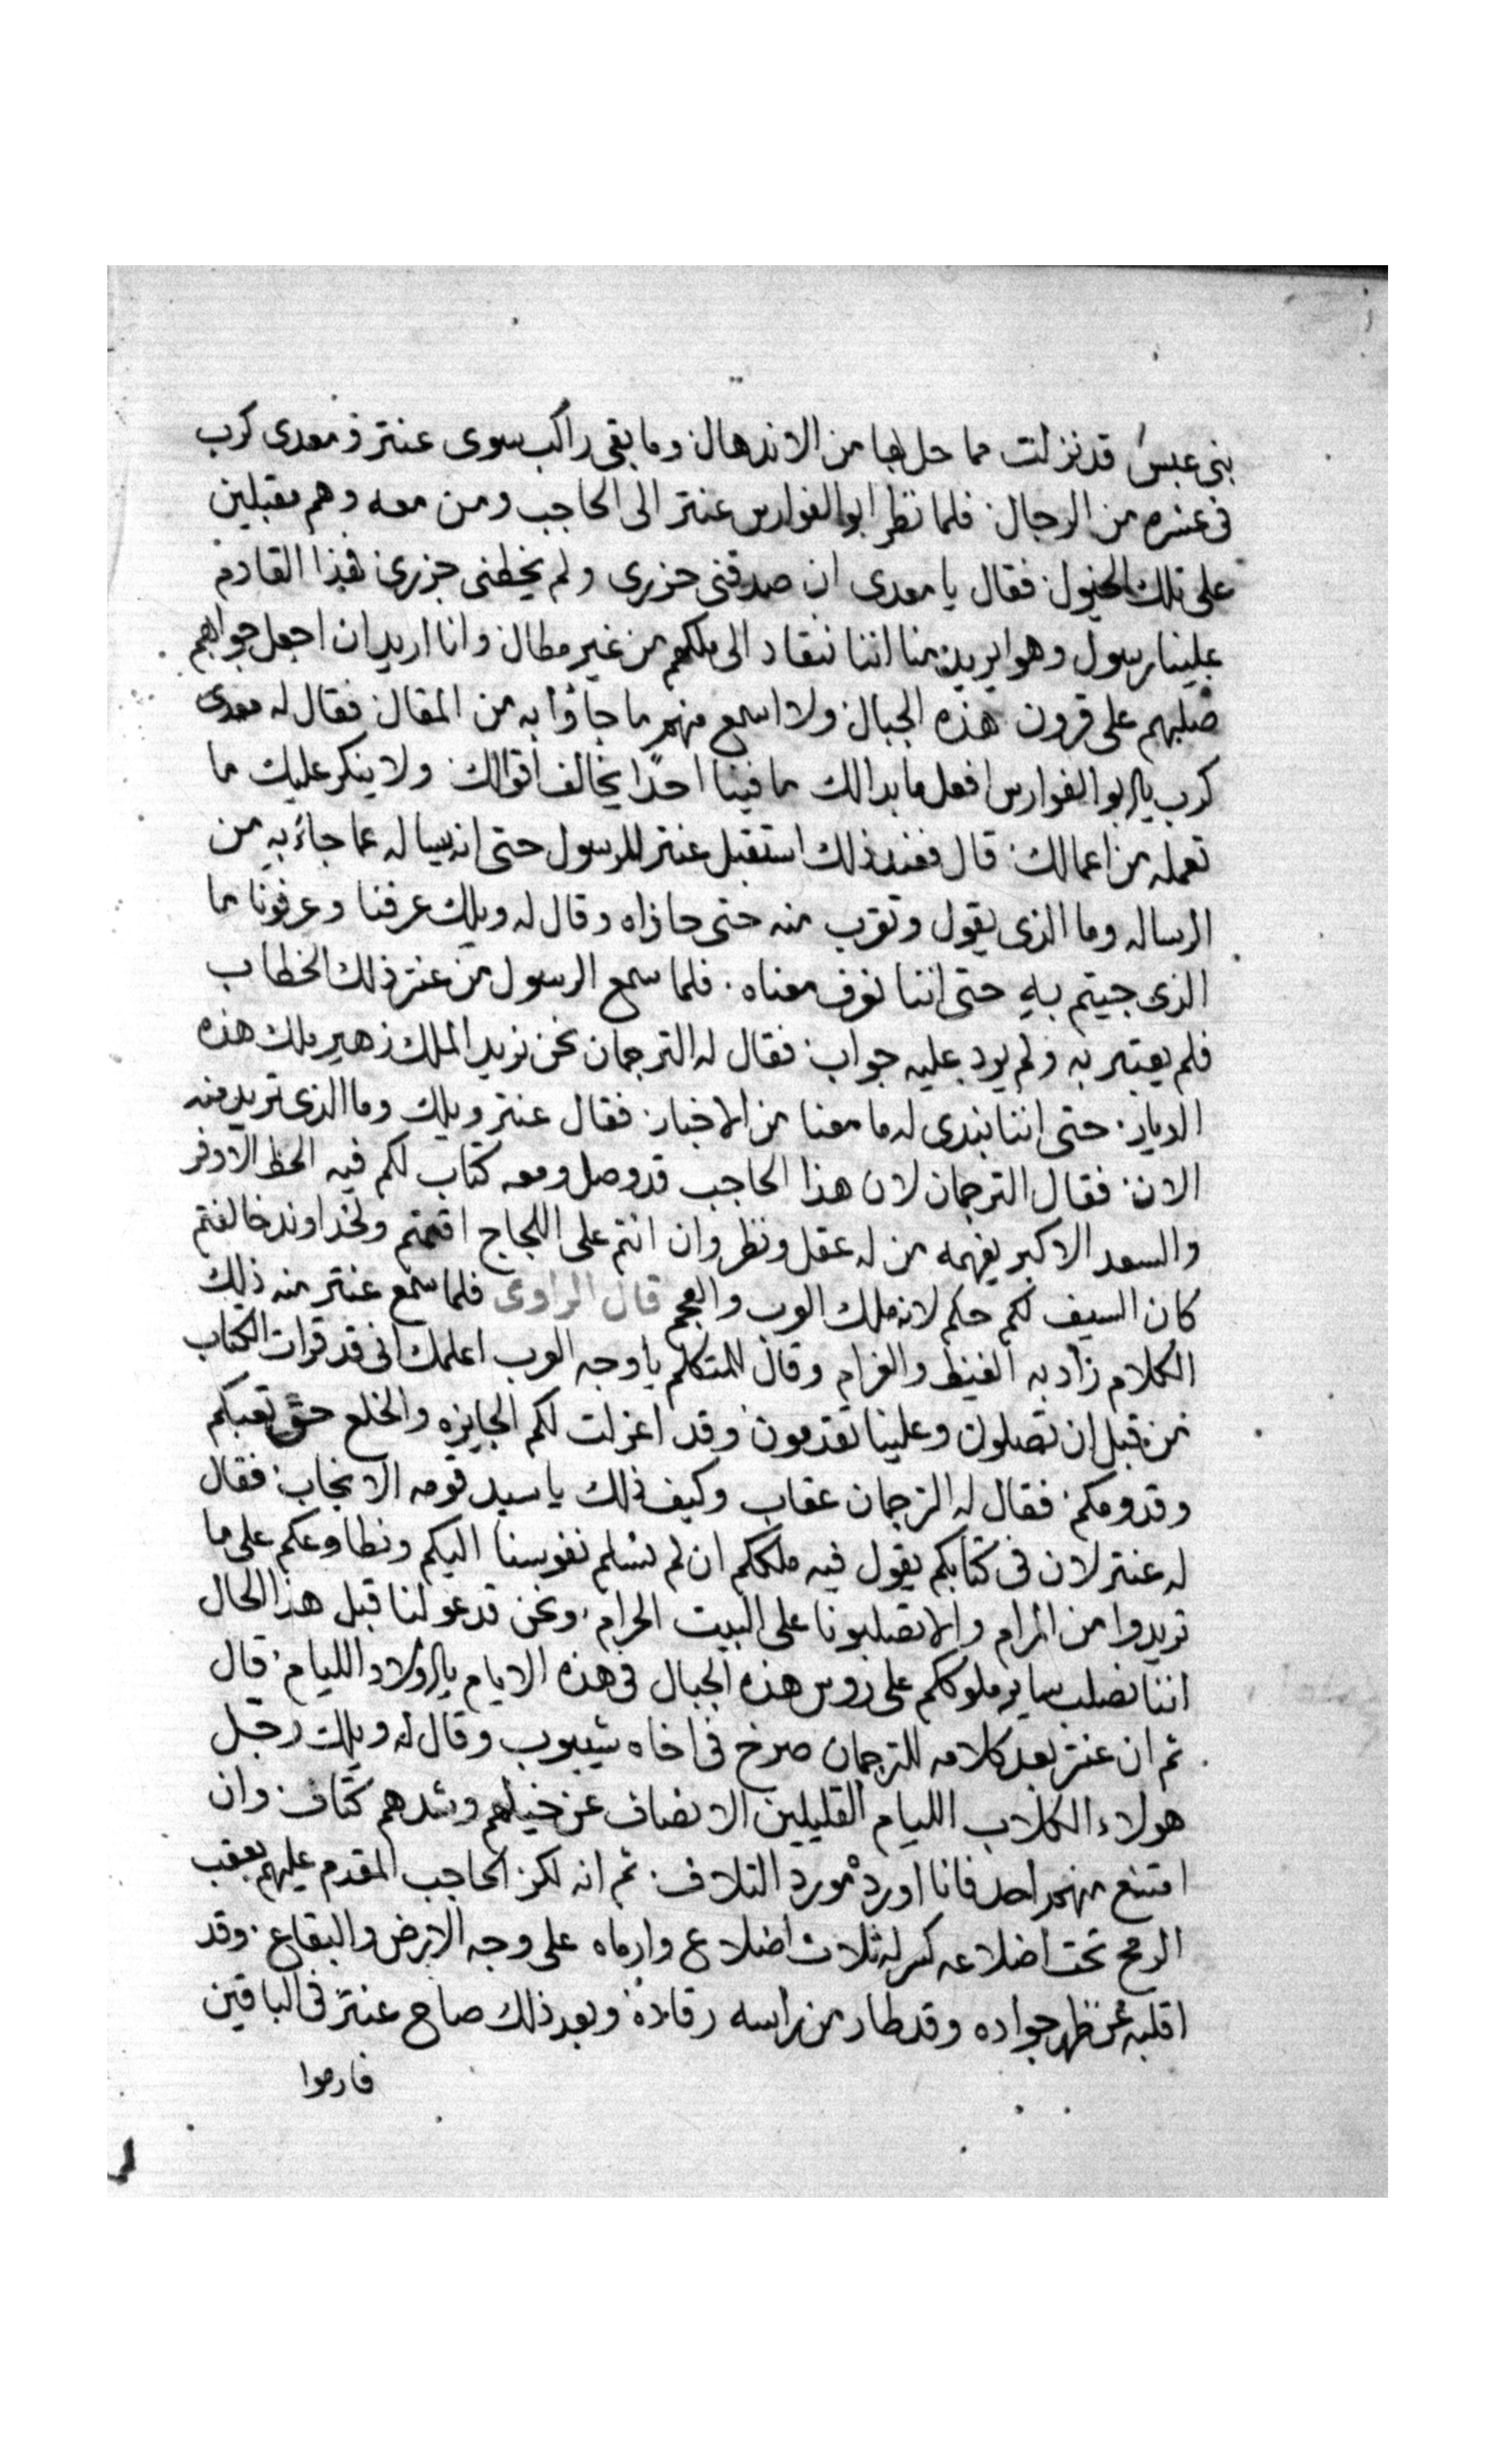 بنى عبس قد نزلت مما حل بها من الاندهال وما بقى راكب سوى عنتر و معدى كرب
فى عشره من الرجال فلما نظر ابو الفوارس عنتر الى الحاجب ومن معه وهم مقبلين
على تلك الخيول فقال يا معدى ان صدقنى حزرى ولم يخطنى حزرى فهذا القادم
علينا رسول وهو يريد منا اننا ننقاد الى ملكهم من غير مطال وانا اريد ان اجعل جوابهم
صلبهم على قرون هذه الجبال ولا اسمع منهم ما جاؤا به من المقال فقال له معدى
كرب يا ابو الفوارس افعل ما بدالك ما فينا احدًا يخالف اقوالك ولا ينكر عليك ما
تعمله من اعمالك قال فعند ذلك استقبل عنتر للرسول حتى انه يساله عما جاء به من
الرساله وما الذى يقول وتقرب منه حتى حاذاه وقال له ويلك عرفنا وعرفونا ما
الذى جيتم به حتى اننا نعرف معناه فلما سمع الرسول من عنتر ذلك الخطاب
فلم يعتبر به ولم يرد عليه جواب فقال له الترجمان نحن نريد الملك زهير ملك هذه
الديار حتى اننا نبدى له ما معنا من الاخبار فقال عنتر ويلك وما الذى تريد منه
الان فقال الترجمان لان هذا الحاجب قد وصل ومعه كتاب لكم فيه الحظ الاوفر
والسعد الاكبر يفهمه من له عقل ونظر وان انتم على اللجاج اقمتم ولخداوند خالفتم
كان السيف لكم حكم لانه ملك العرب والعجم قال الراوى فلما سمع عنتر منه ذلك
الكلام زاد به الغيظ والغرام وقال للمتكلم يا وجه العرب اعلمك انى قد قرات الكتاب
من قبل ان تصلون وعلينا تقدمون وقد اعزلت لكم الجايزه والخلع حق تعبكم
وقدومكم فقال له الترجمان عقاب وكيف ذلك يا سيد قومه الانجاب فقال
له عنتر لان فى كتابكم يقول فيه ملككم ان لم نسلم نفوسنا اليكم ونطاوعكم على ما
تريدوا من المرام والا تصلبونا على البيت الحرام ونحن قد عولنا قبل هذا الحال
اننا نصلب ساير ملوككم على روس هذه الجبال فى هذه الايام يا اولاد الليام قال
ثم ان عنتر بعد كلامه للترجمان صرخ فى اخاه شيبوب وقال له ويلك رجل
هولاء الكلاب الليام القليلين الانصاف عن خيلهم وشدهم كتاف وان
امتنع منهم احد فانا اورده مورد التلاف ثم انه لكز الحاجب المقدم عليهم بعقب
الرمح تحت اضلاعه كسر له ثلاث اضلاع وارماه على وجه الارض والبقاع وقد
اقلبه عن ظهر جواده وقد طار من راسه رقاده وبعد ذلك صاح عنتر فى الباقين
فارموا